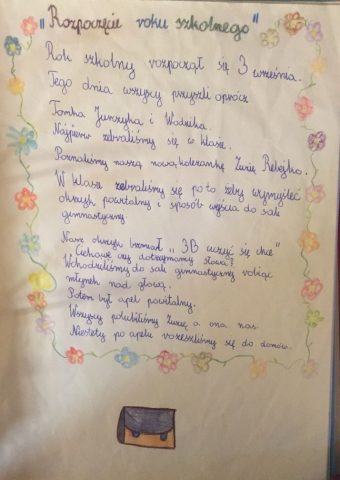 "Rozpoczęcie roku szkolnego"
Rok szkolny rozpoczął się 3 września.
Tego dnia wszyscy przyszli oprócz
Tomka Jurczyka i Wodzika.
Najpierw zebraliśmy się w klasie.
Poznaliśmy naszą nową koleżankę Zuzię
W klasie zebraliśmy się po to żeby wymyśleć
okrzyk powitalny i sposób wyjścia do sali
gimnastycznej
Nasz okrzyk brzmiał „3B uczyć się chce"
Ciekawe czy dotrzymamy słowa?
Wchodziliśmy do sali gimnastycznej robiąc
młynek nad głową.
Potem był apel powitalny.
Wszyscy polubiliśmy Zuzię a ona nas.
Niestety po apelu rozeszliśmy się do domów.